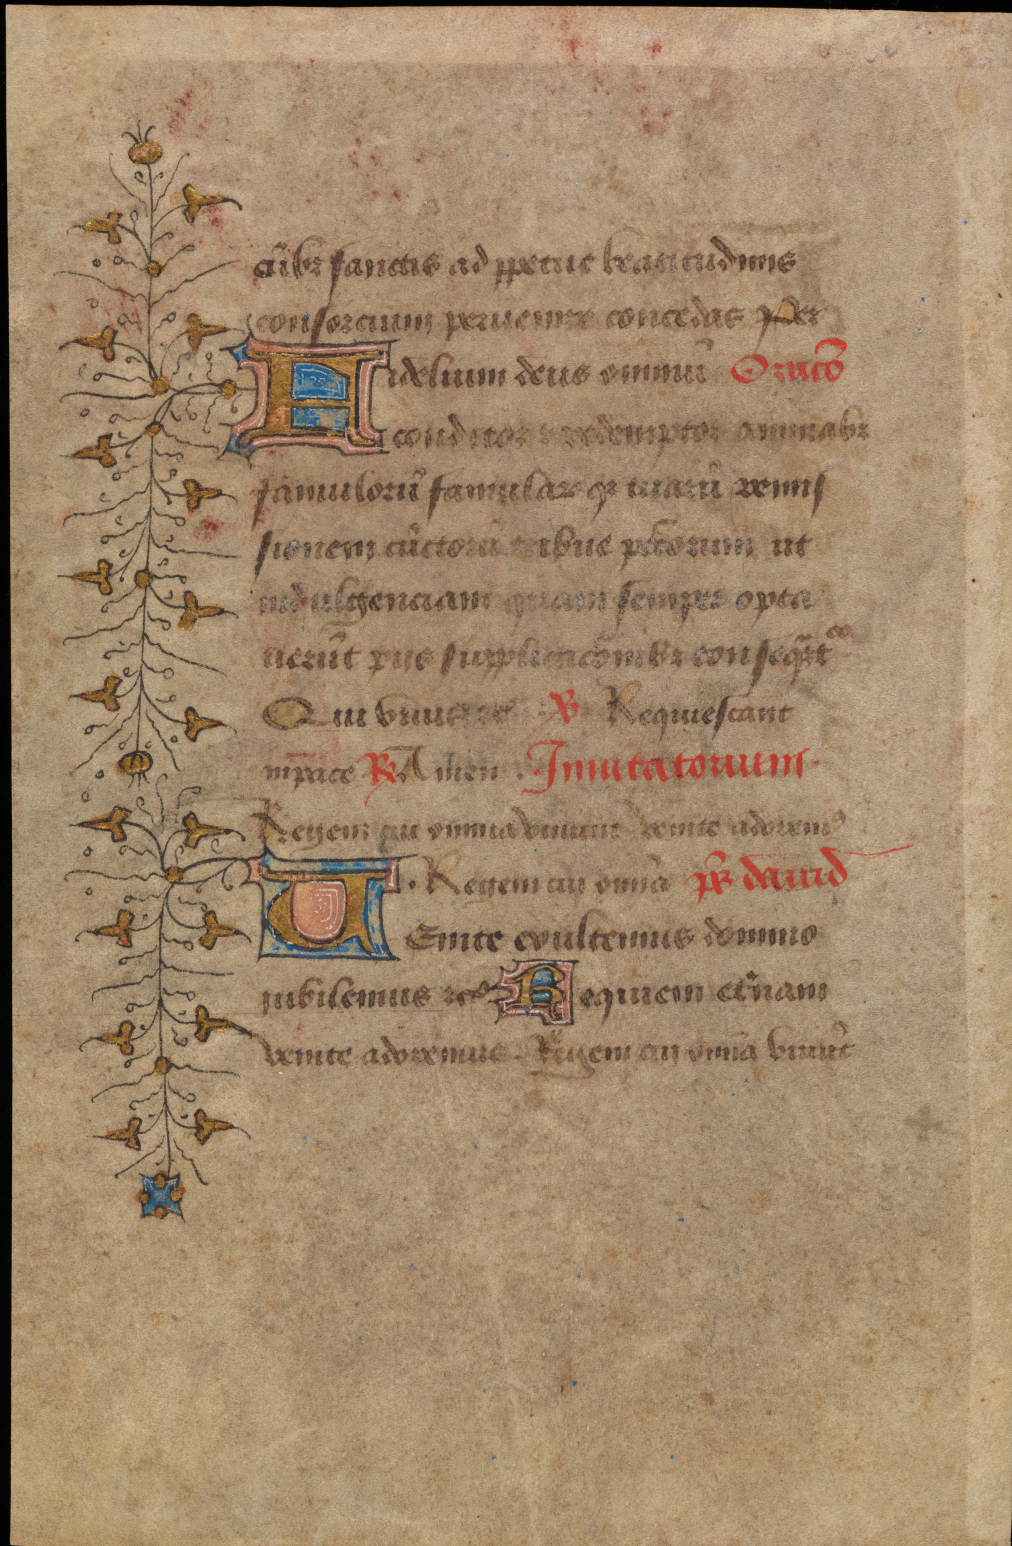 cūbꝫ sanctis ad ꝑpetue beatitudinis
consorcium peruenire concedas Per
Fidelium deus omniū Oracō
conditor ⁊ redemptor animabꝫ
famulorū famularū qꝫ tuarū remis
sionem cūctorū tribue pctōrum ut
indulgenciam quam semper opta
uerūt pijs supplicacōnibꝫ conseqꝫt
Qui viuis ⁊c ℣ Requiescant
in pace ℟ Amen . Inuitatorium.
Regem cui omnia viuunt venite adoremꝰ
. Regem cui omīa pꝭ dauid
UEnite exultemus domino
iubilemus ⁊c Requiem etᷓnam
venite adoremus . Regem cui omīa viuūt